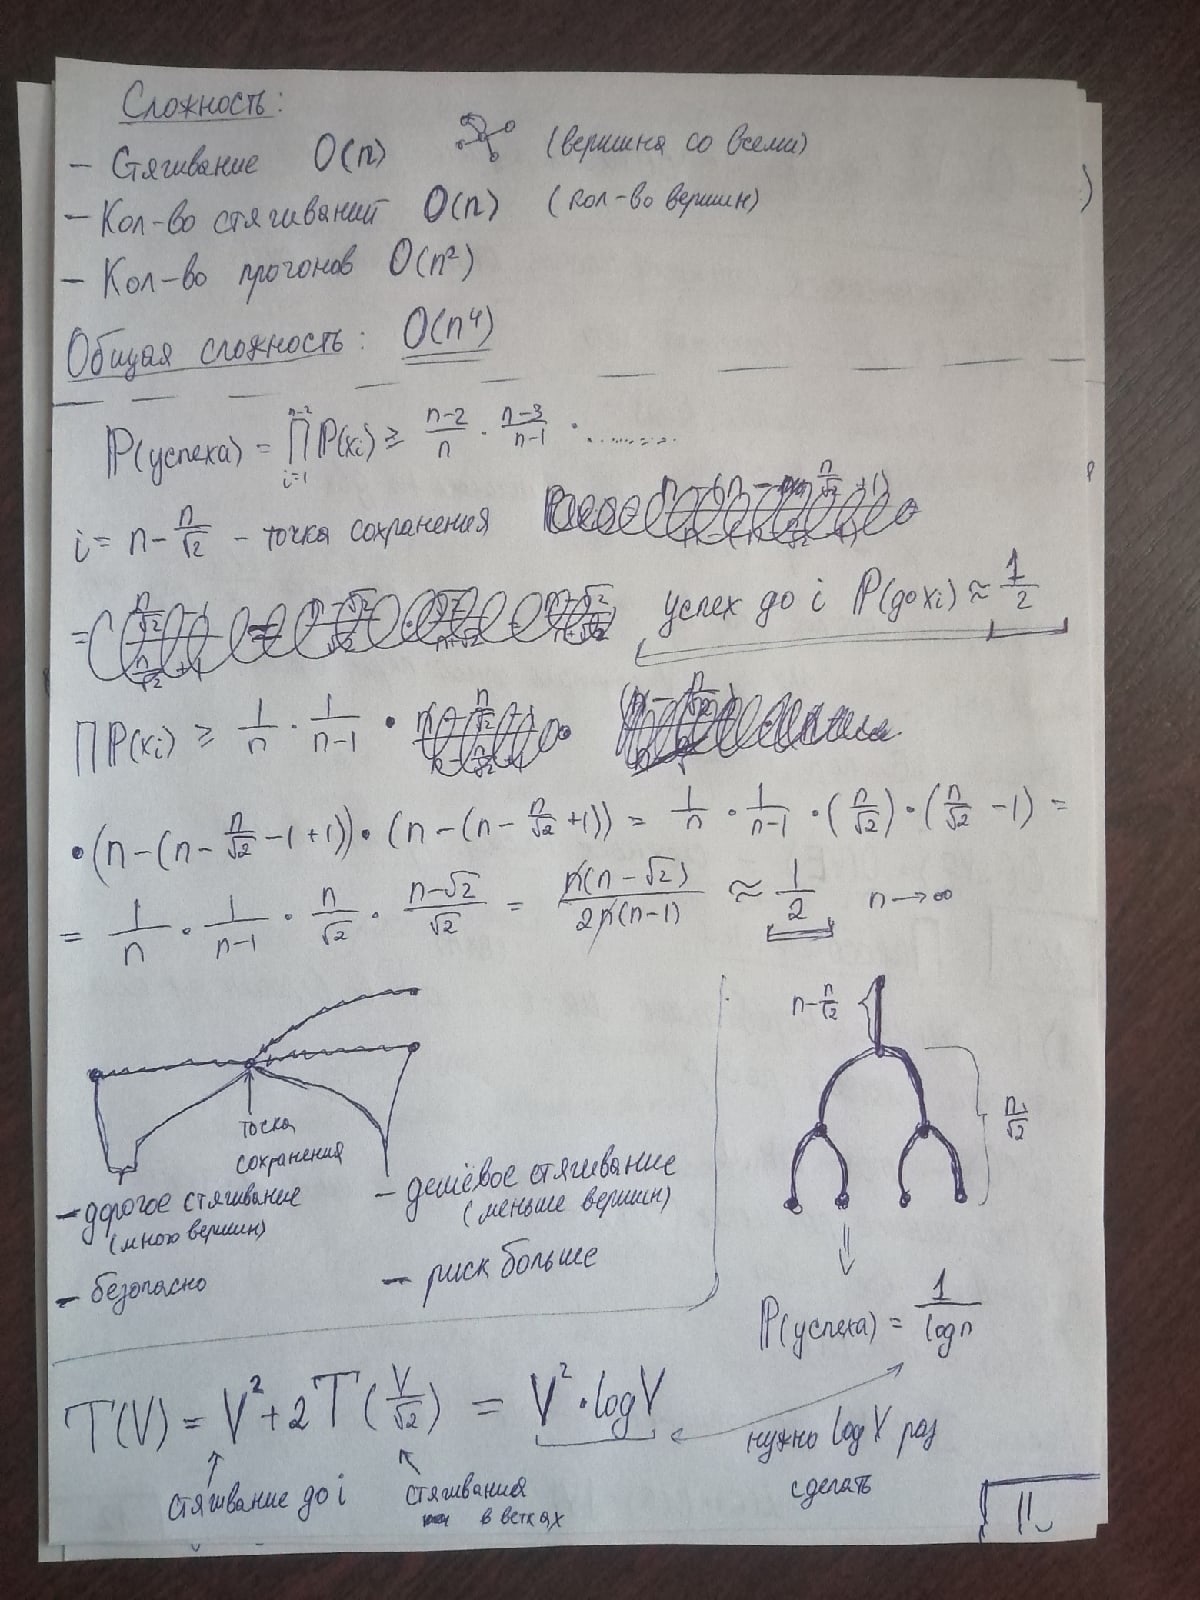 Сложность:
– Стягивание O(n) (вершина со всеми)
– Кол-во стягиваний O(n) (кол-во вершин)
– Кол-во прогонов O(n²)
Общая сложность: O(n⁴)
ℙ(успеха) = ∏_{i=1}^{n-2} ℙ(xᵢ) ≥ (n-2)/n · (n-3)/(n-1) · ........
i = n - n/√2 – точка сохранения
успех до i ℙ(до xᵢ) ≈ 1/2
∏ ℙ(xᵢ) ≥ 1/n · 1/(n-1) ·
· (n-(n-n/√2-1+1)) · (n-(n-n/√2+1)) = 1/n · 1/(n-1) · (n/√2) · (n/√2 -1) =
= 1/n · 1/(n-1) · n/√2 · (n-√2)/√2 = n(n-√2)/2n(n-1) ≈ 1/2 n→∞
точка
сохранения
– дорогое стягивание
(много вершин)
– безопасно
– дешёвое стягивание
(меньше вершин)
– риск больше
n - n/√2
n/√2
ℙ(успеха) = 1/log n
T(V) = V² + 2T(V/√2) = V² · log V
стягивание до i
стягивания
в ветках
нужно log V раз
сделать
11